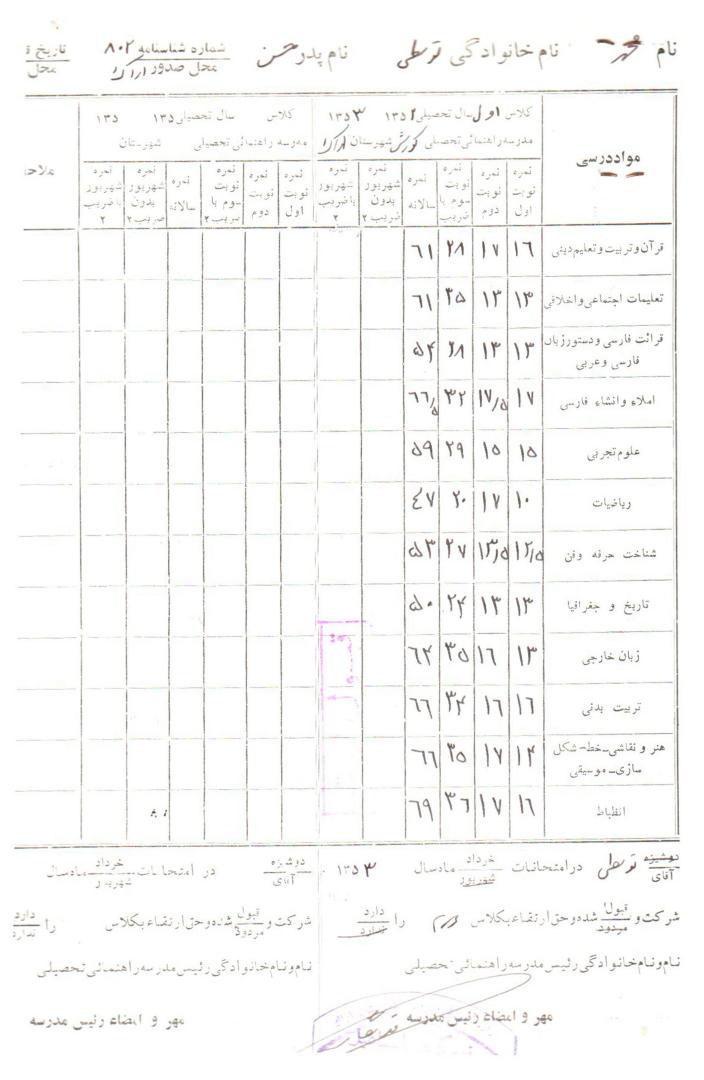 نام نام خانوادگی توسطی نام پدر حسن شماره شناسنامه ۸۰۲ محل صدور اراک تاریخ محل
مواد درسی
کلاس اول سال تحصیلی ۱۳۵۲ ۱۳۵۳
مدرسه راهنمائی تحصیلی کورش شهرستان اراک
نمره نوبت اول
نمره نوبت دوم
نمره نوبت سوم با ضریب ۲
نمره سالانه
نمره شهریور بدون ضریب ۲
نمره شهریور با ضریب ۲
کلاس سال تحصیلی ۱۳۵ ۱۳۵
مدرسه راهنمائی تحصیلی شهرستان
نمره نوبت اول
نمره نوبت دوم
نمره نوبت سوم با ضریب ۲
نمره سالانه
نمره شهریور بدون ضریب ۲
نمره شهریور با ضریب ۲
ملاح
قرآن و تربیت و تعلیم دینی ۱۶ ۱۷ ۲۸ ۶۱
تعلیمات اجتماعی و اخلاقی ۱۳ ۱۳ ۳۵ ۶۱
قرائت فارسی و دستور زبان ۱۳ ۱۳ ۲۸ ۵۴
فارسی و عربی
املاء و انشاء فارسی ۱۷ ۱۷/۵ ۳۲ ۶۶/۵
علوم تجربی ۱۵ ۱۵ ۲۹ ۵۹
ریاضیات ۱۰ ۱۷ ۲۰ ۴۷
شناخت حرفه و فن ۱۲/۵ ۱۳/۵ ۲۷ ۵۳
تاریخ و جغرافیا ۱۳ ۱۳ ۲۴ ۵۰
زبان خارجی ۱۳ ۱۶ ۳۵ ۶۴
تربیت بدنی ۱۶ ۱۶ ۳۴ ۶۶
هنر و نقاشی-خط-شکل ۱۴ ۱۷ ۳۵ ۶۶
سازی-موسیقی
انظباط ۱۶ ۱۷ ۳۶ ۶۹
قبول
دوشیزه آقای توسطی در امتحانات خرداد شهریور ماه سال ۱۳۵۳
شرکت و قبول مردود شده و حق ارتقاء بکلاس دوم را دارد ندارد
نام و نام خانوادگی رئیس مدرسه راهنمائی تحصیلی
مهر و امضاء رئیس مدرسه
دوشیزه آقای در امتحانات خرداد شهریور ماه سال
شرکت و قبول مردود شده و حق ارتقاء بکلاس را دارد ندارد
نام و نام خانوادگی رئیس مدرسه راهنمائی تحصیلی
مهر و امضاء رئیس مدرسه